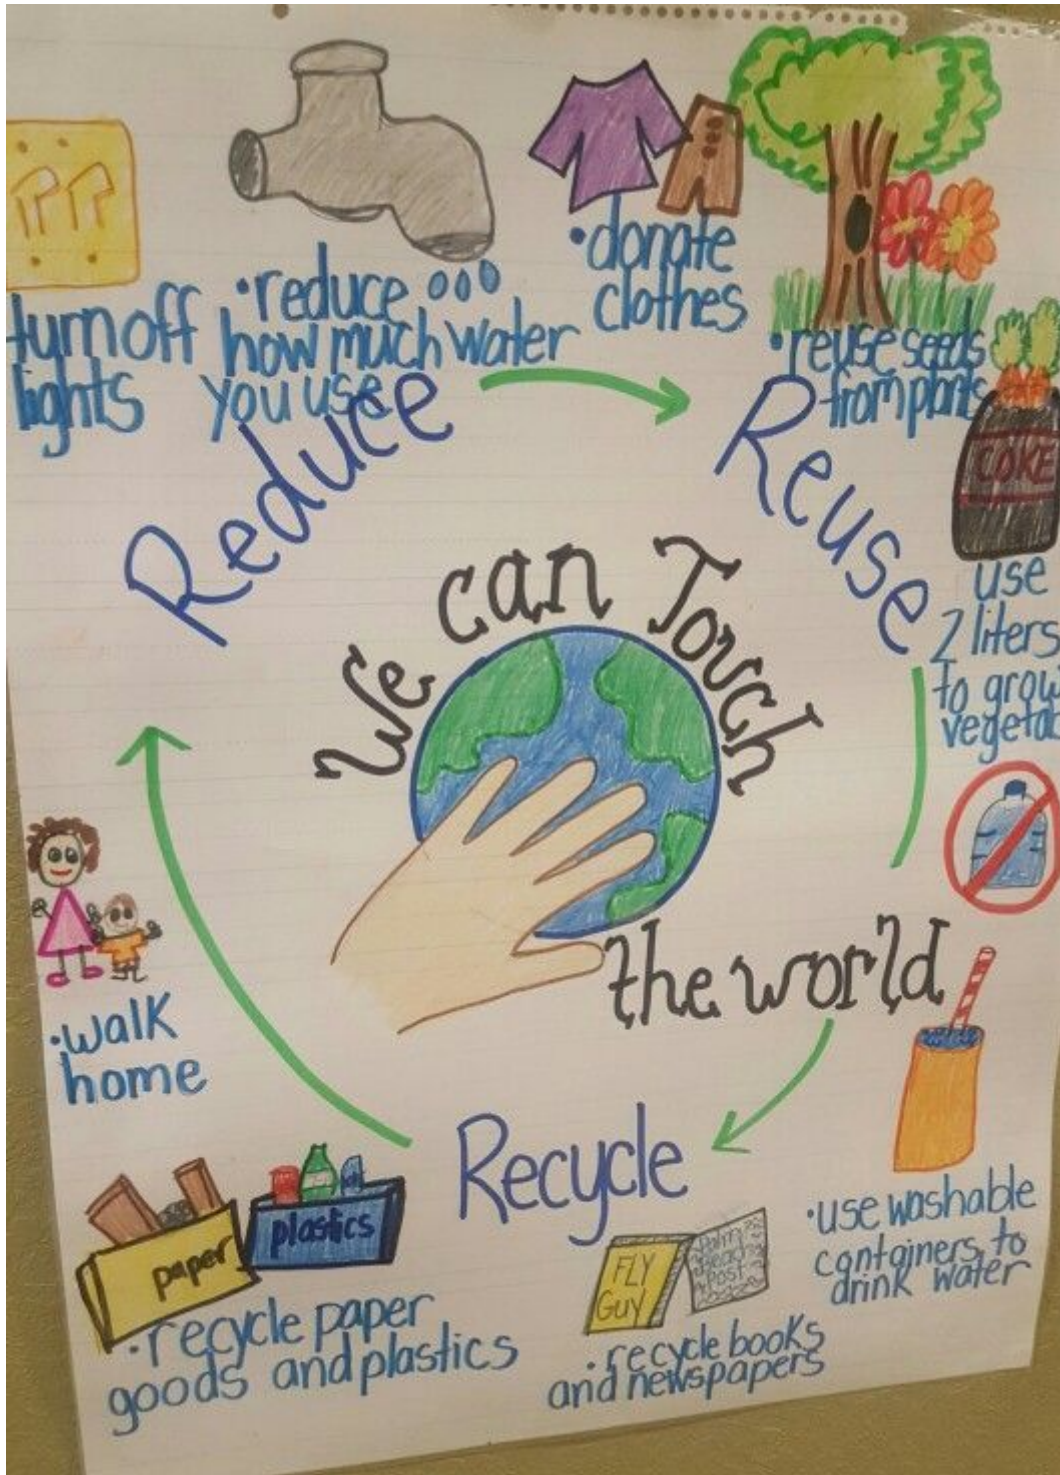 turn off
lights
•reduce
how much water
you use
•donate
clothes
•reuse seeds
from plants
Reduce
Reuse
COKE
use
2 liters
to grow
We can Touch
the world
•walk
home
Recycle
paper
plastics
•recycle paper
goods and plastics
FLY
GUY
Palm
Beach
Post
•recycle books
and newspapers
•use washable
containers to
drink water